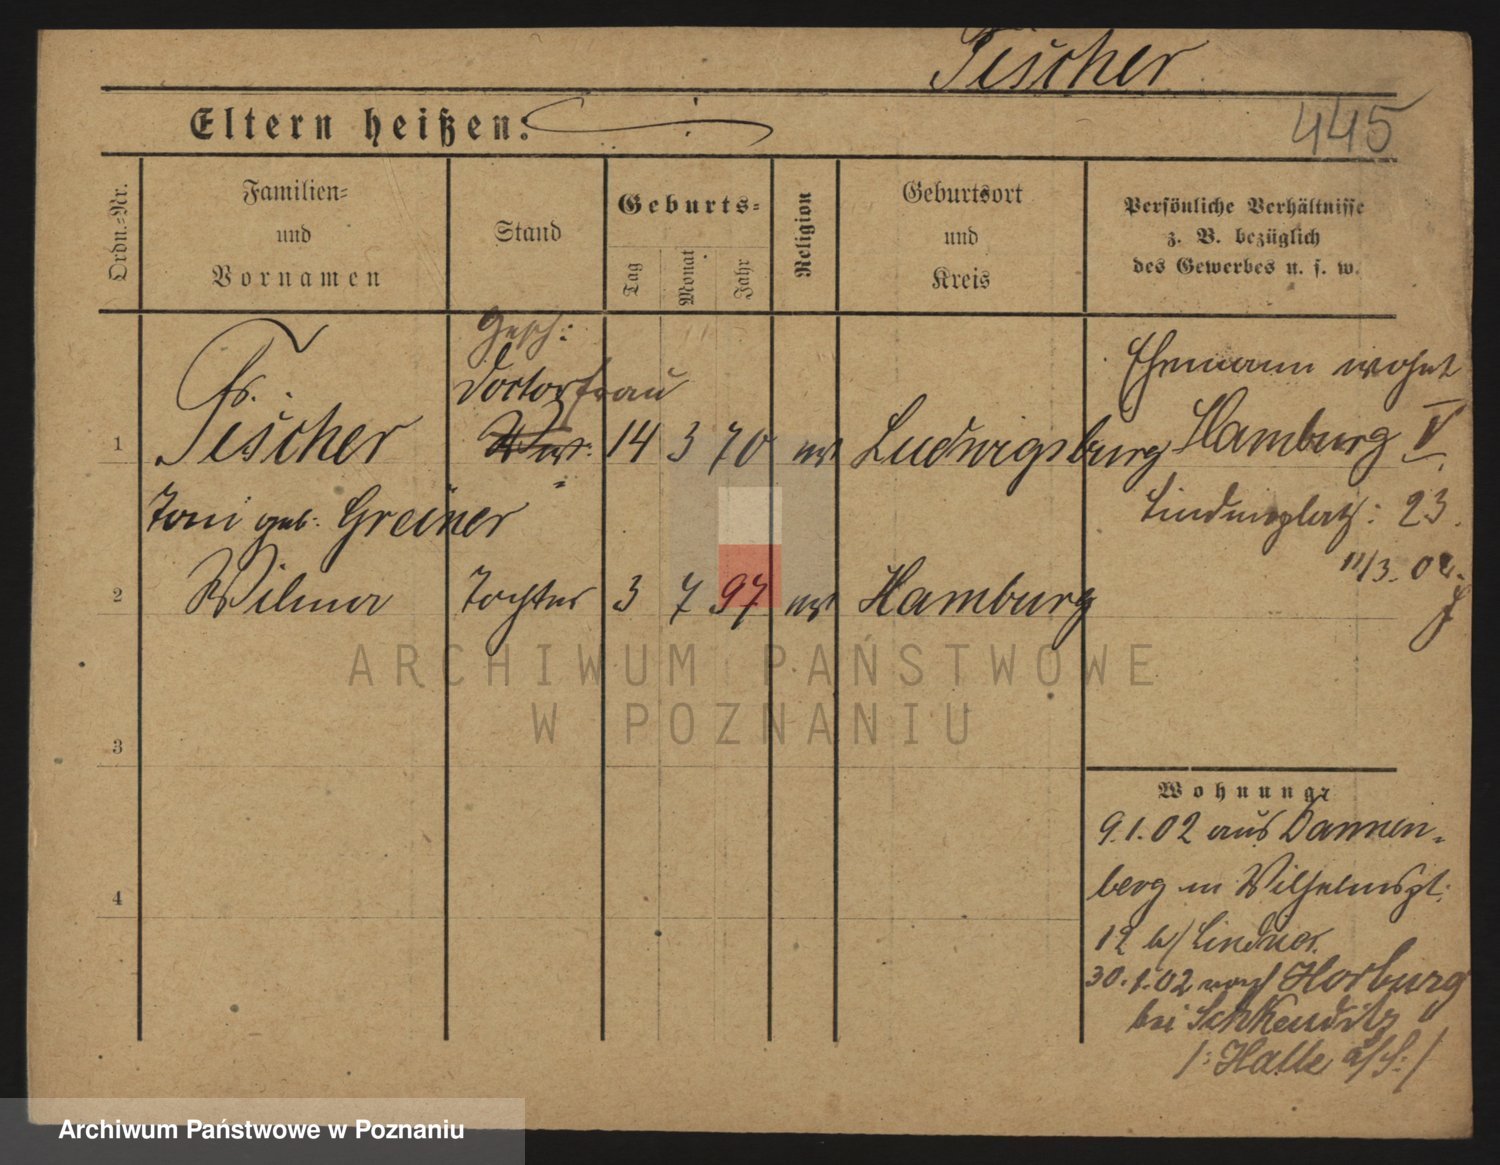 Fischer
445
Eltern heißen:
Ordn.-Nr.
Familien-
und
Vornamen
Stand
Geburts-
Tag
Monat
Jahr
Religion
Geburtsort
und
Kreis
Persönliche Verhältnisse
z. B. bezüglich
des Gewerbes u. s. w.
Gesch:
Doctorfrau
Fr.
1 Fischer 14 3 70 ev Ludwigsburg
Toni geb. Greiner
2 Wilma Tochter 3 7 97 ev Hamburg
3
4
Ehemann wohnt
Hamburg V
Lindenplatz: 23.
11/3. 02.
Wohnung:
9.1.02 aus Dannen-
berg in Wilhelmspl.
12 b/ Lindner.
30.1.02 nach Horburg
bei Schkeuditz
/: Halle a/S:/
ARCHIWUM PAŃSTWOWE
W POZNANIU
Archiwum Państwowe w Poznaniu